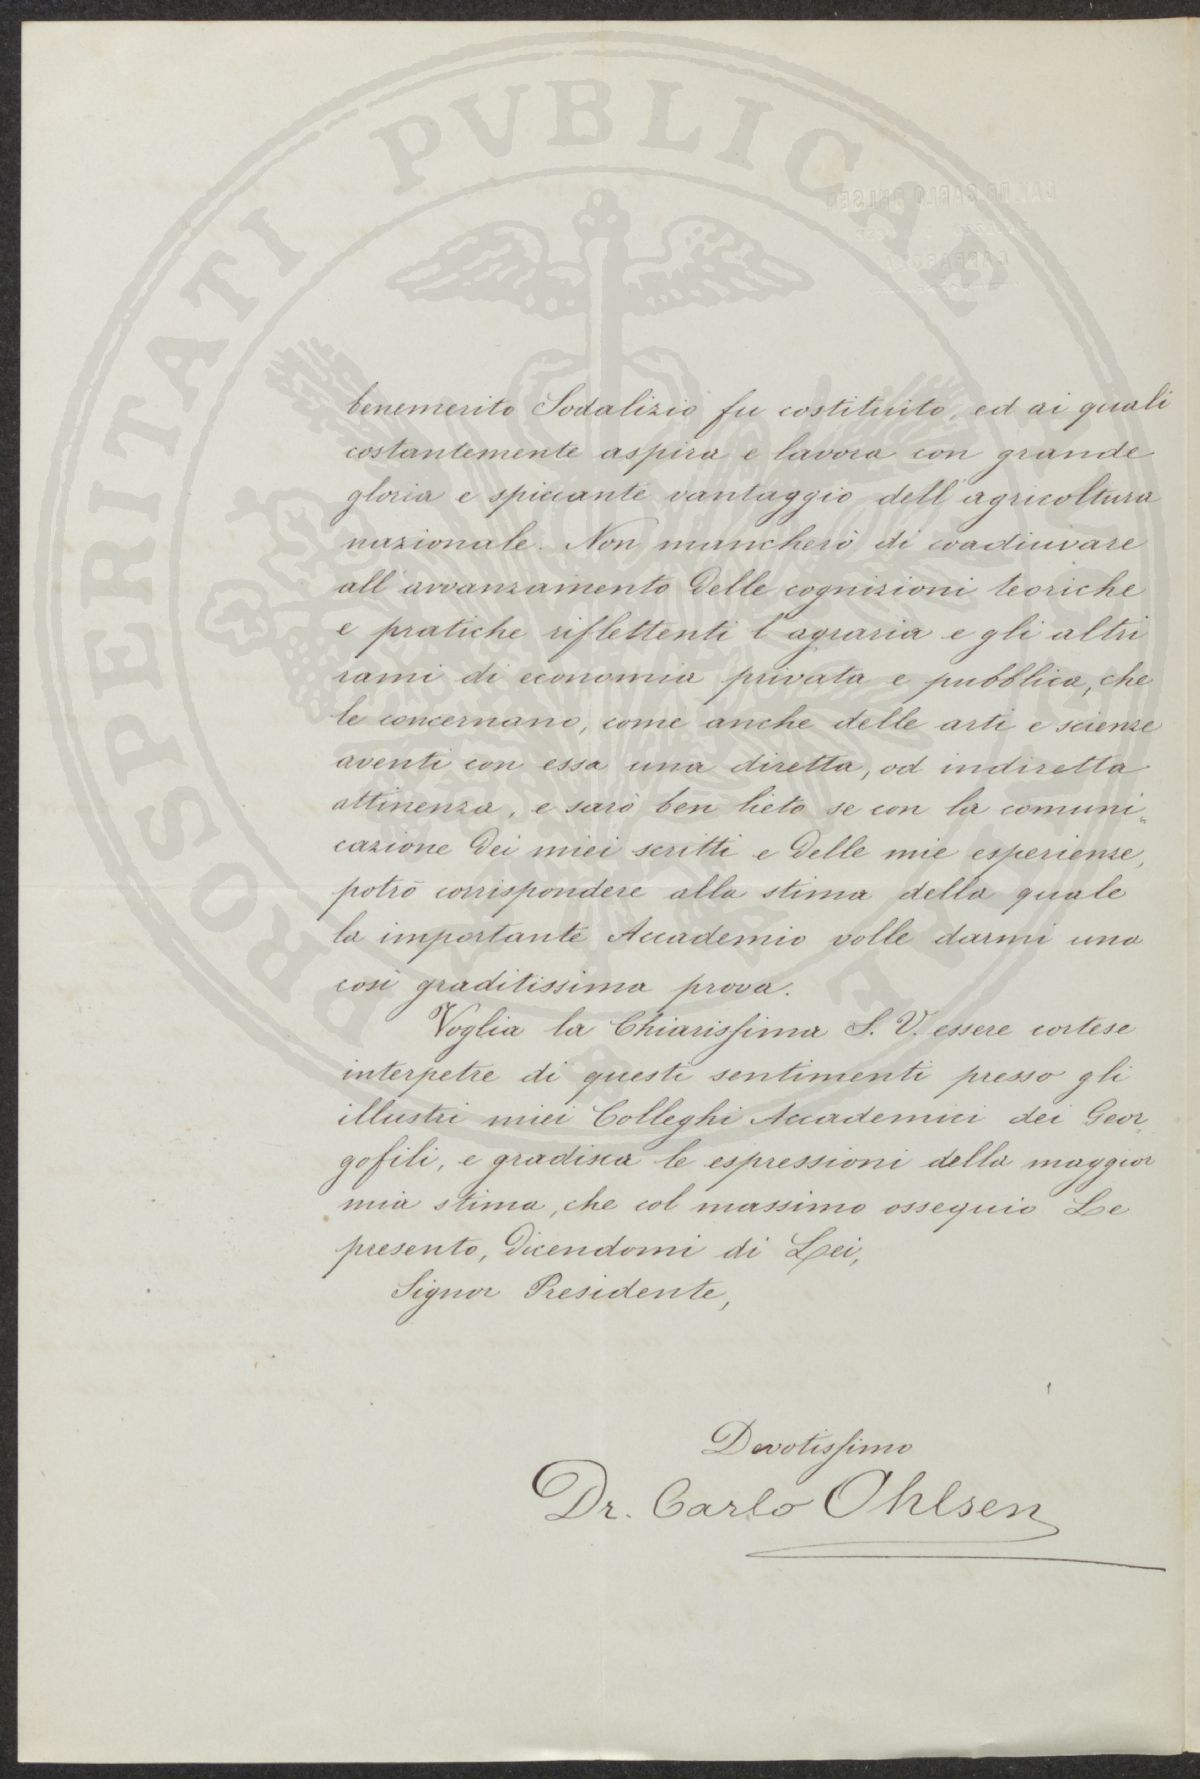 PROSPERITATI PUBLICAE AUGENDAE
benemerito Sodalizio fu costituito, ed ai quali
costantemente aspira e lavora con grande
gloria e spiccante vantaggio dell'agricoltura
nazionale. Non mancherò di coadiuvare
all'avvanzamento delle cognizioni teoriche
e pratiche riflettenti l'agraria e gli altri
rami di economia privata e pubblica, che
le concernano, come anche delle arti e scienze
aventi con essa una diretta, od indiretta
attinenza, e sarò ben lieto se con la comuni„
cazione dei miei scritti e delle mie esperienze,
potrò corrispondere alla stima della quale
la importante Accademia volle darmi una
così graditissima prova.
Voglia la Chiarissima S. V. essere cortese
interpetre di questi sentimenti presso gli
illustri miei Colleghi Accademici dei Geor„
gofili, e gradisca le espressioni della maggior
mia stima, che col massimo ossequio Le
presento, dicendomi di Lei,
Signor Presidente,
Devotissimo
Dr. Carlo Ohlsen